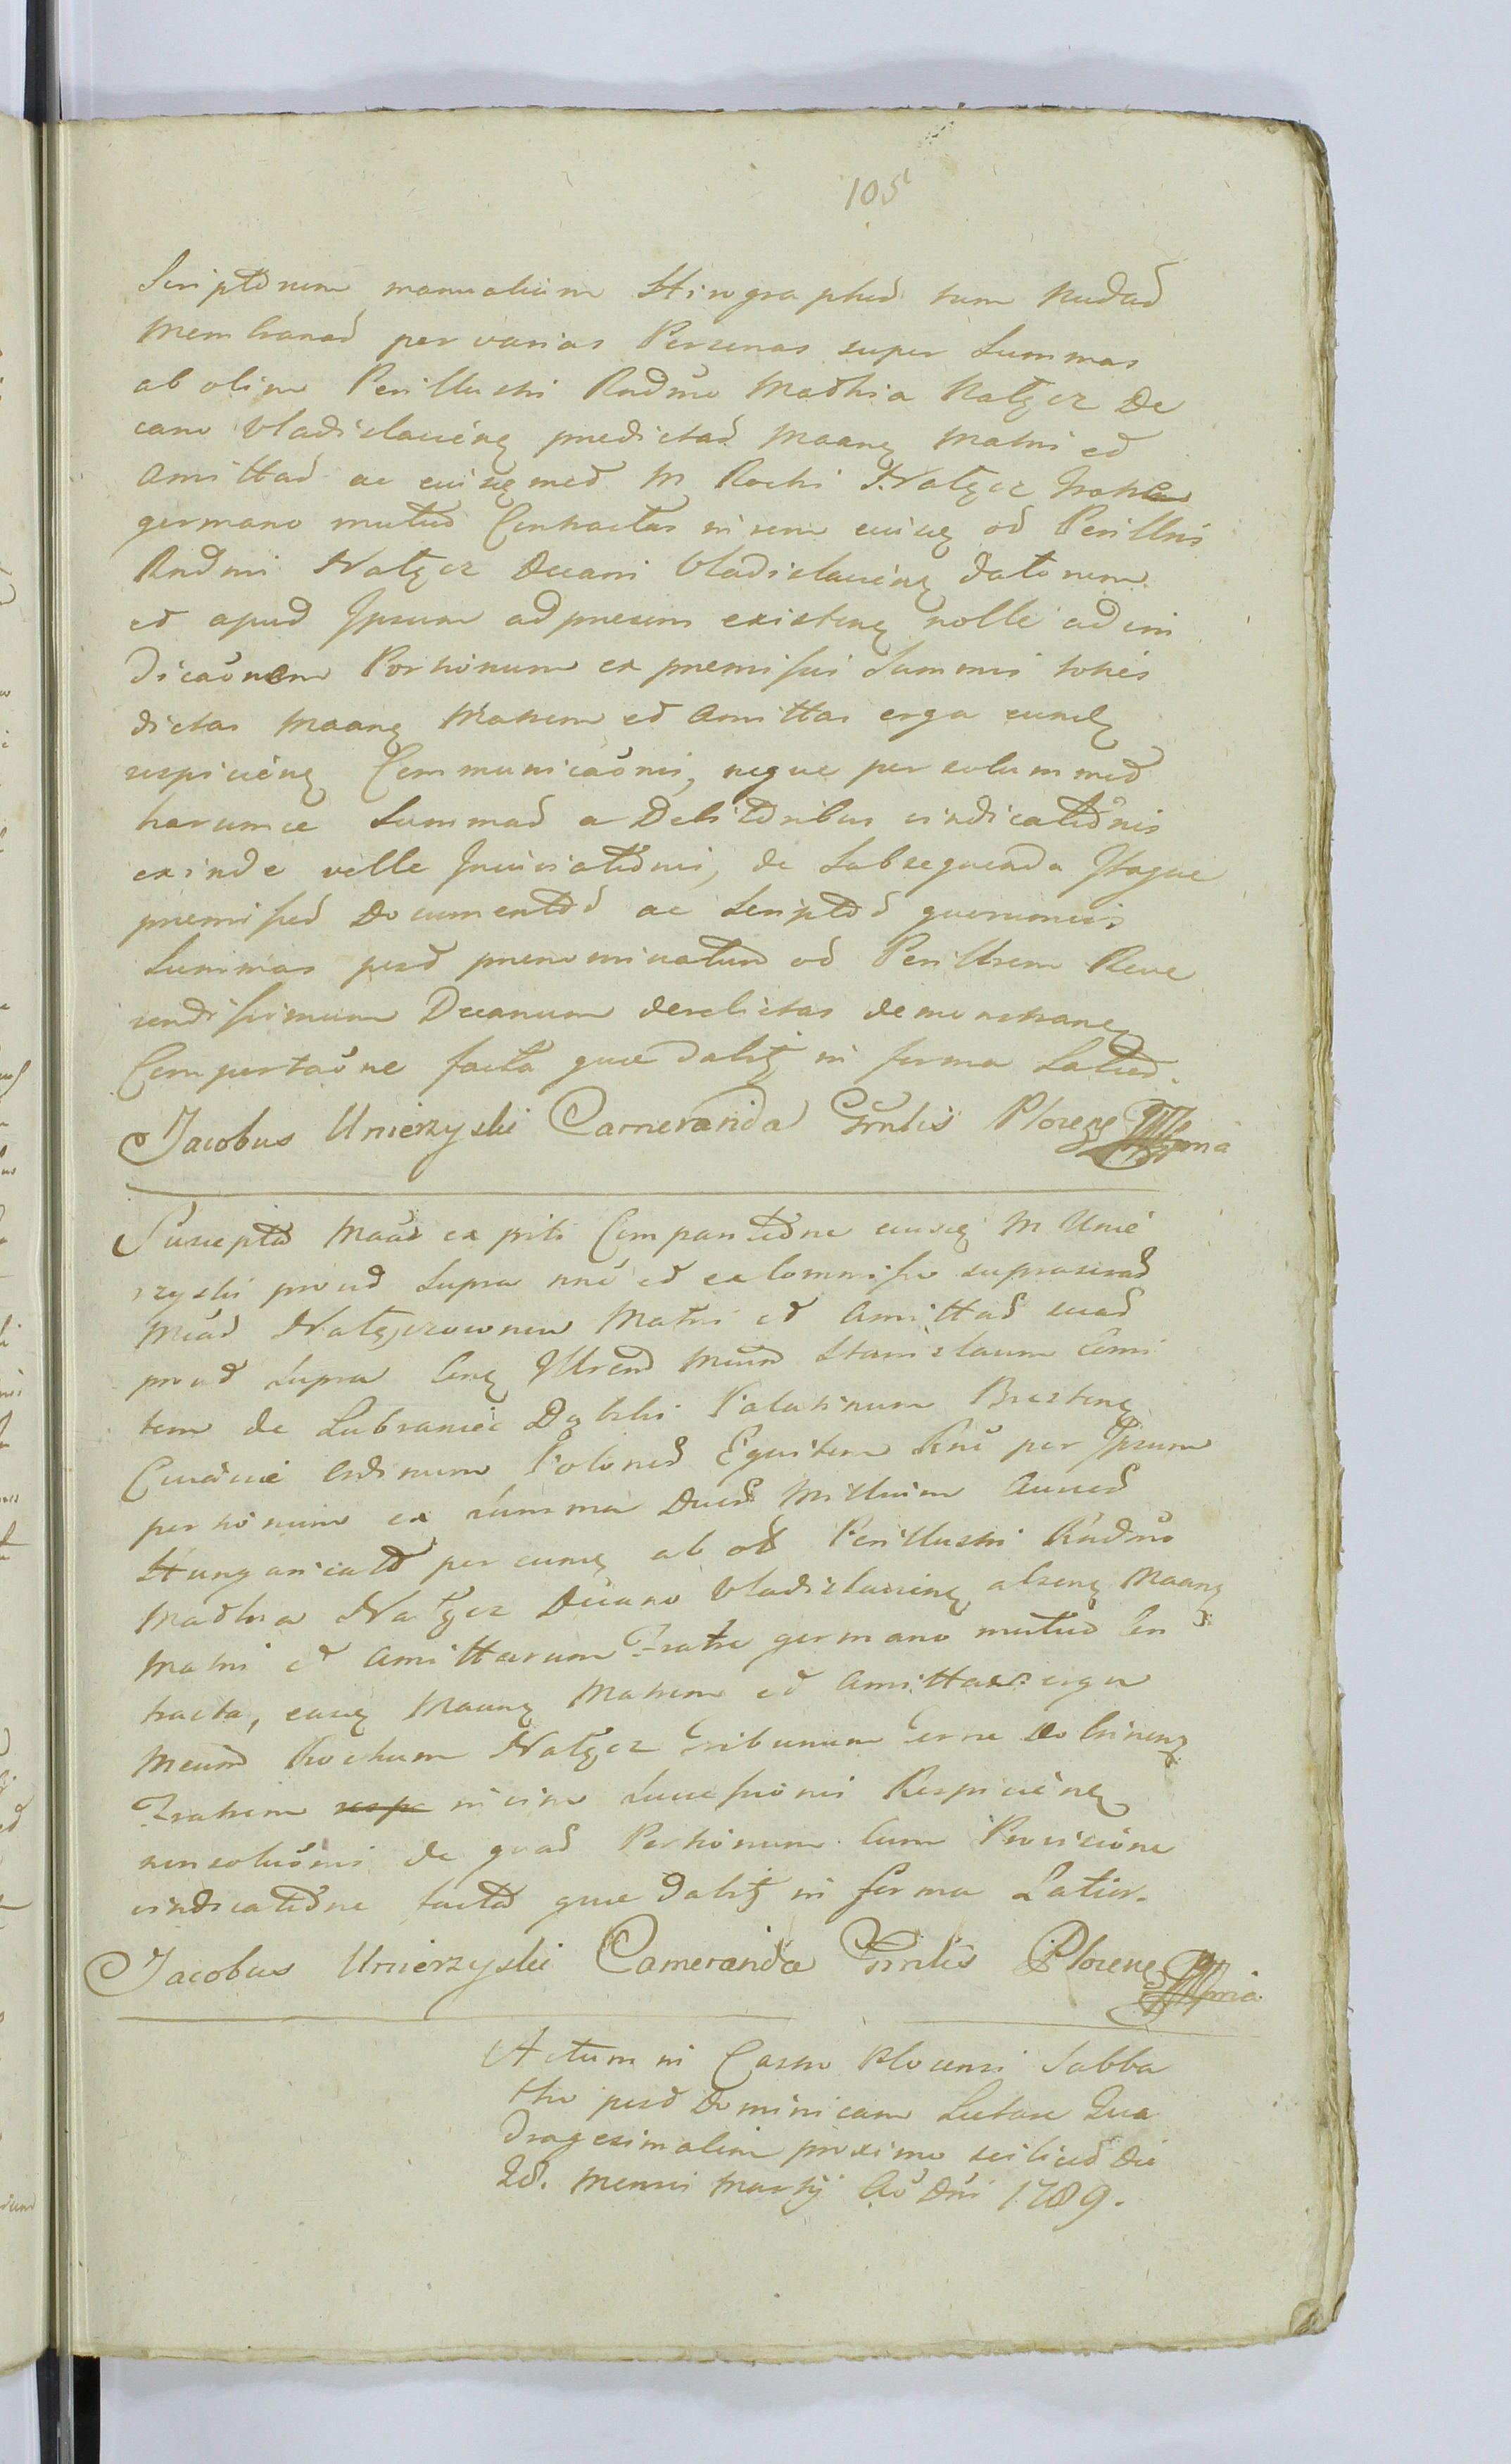 105
Scriptorum manualium Hirographor tum nudar
Membranar per varias Personas super Summas
ab olim Perillustri Rndmo Mathia Nałęcz De
cano Vladislavien predictar Maang Matri et
Amittar ac eiusq med M Rochi Nałęcz
germano mutuo Contractas in rem eiusq od Perillris
Rndmi Nałęcz Decani Vladislavien datorum
et apud Ipsum ad presens existeng nolle ad
dicaonem Portionum ex premissis Summis toties
dictas Maang Matrem et Amittas erga eundq
respicieng Communicaonis, neque per solummod
harumce Summar a Debitoribus vindicationis
exinde velle, de Subsequenda Itaque
premissor Documentor ac Scriptor quorumvis
Summas post prenominatum od Perillrem Reve
rendissimum Decanum derelictas demonstrang
Comportaone facta que dabitg in forma Latior.
Jacobus Umierzyski Camerarida Grnlis Plocens mpria
Suscepta Maar ex priti Comparitione eiusq M Umie
rzyski prout Supra nne et ex Commisso suprascrar
Mear Nałęczowneu Matri et Amittar suar
prout Supra Cong Illrem Meum Stanislaum Comi
tem de Lubraniec Dąbski Palatinum Brestens
Cuiavie Ordinum Polonor Equitem Rne per Ipsum
portionum ex summa Duor Millium Aureor
Hungaricalr per eumq ab od Perillustri Rndmo
Mathia Nałęcz Decano Vladislavieng alseng Maang
Matri et Amittarum Fratre germano mutuo Con
tracta, easq Maang Matrem et Amittas erga
Meum Rochum Nałęcz Tribunum Terre Dobrineng
Fratrem resp in vim Successionis Respicieng
nonsoluonis de quar Portionum Cum Provisione
vindicatione facta que dabitg in forma Latior.
Jacobus Umierzyski Camerarida Grnlis Plocens mpria
Actum in Castro Plocensi Sabba
tho post Dominicam Laetare Qua
dragesimalem proximo scilicet die
28. Mensis Martij Ao Dni 1789.